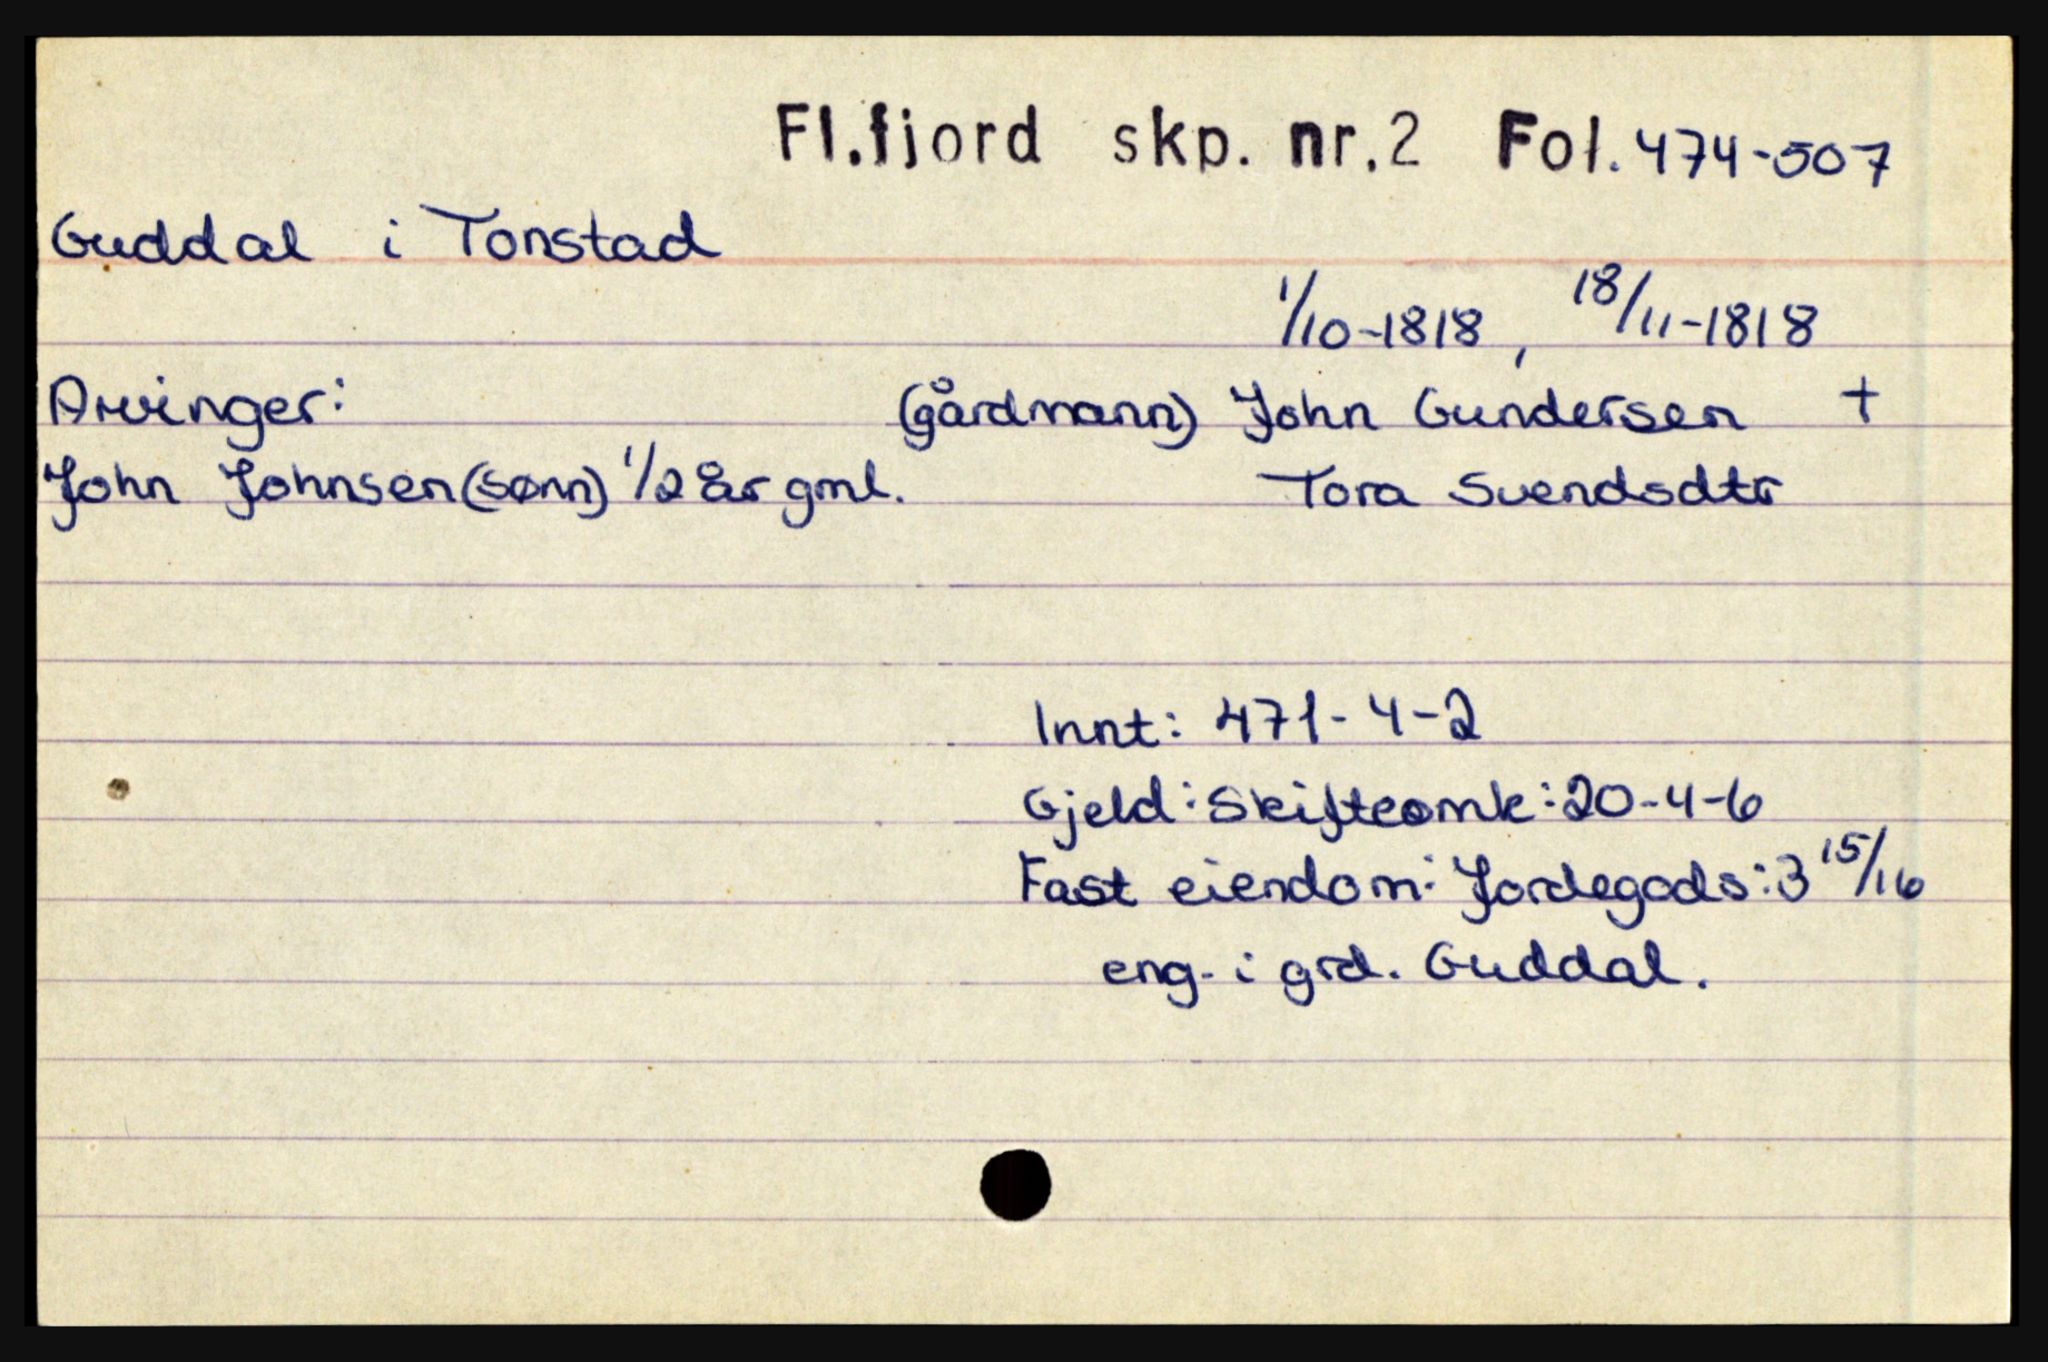 Fl.fjord skp. nr.2 Fol. 474-507
Guddal i Tonstad
1/10-1818, 18/11-1818
Arvinger: (gårdmann) John Gundersen +
John Johnsen (sønn) 1/2 år gml. Tora Svendsdtr
Innt: 471-4-2
Gjeld: Skifteomk: 20-4-6
Fast eiendom: Jordegods: 3 15/16
eng. i grd. Guddal.